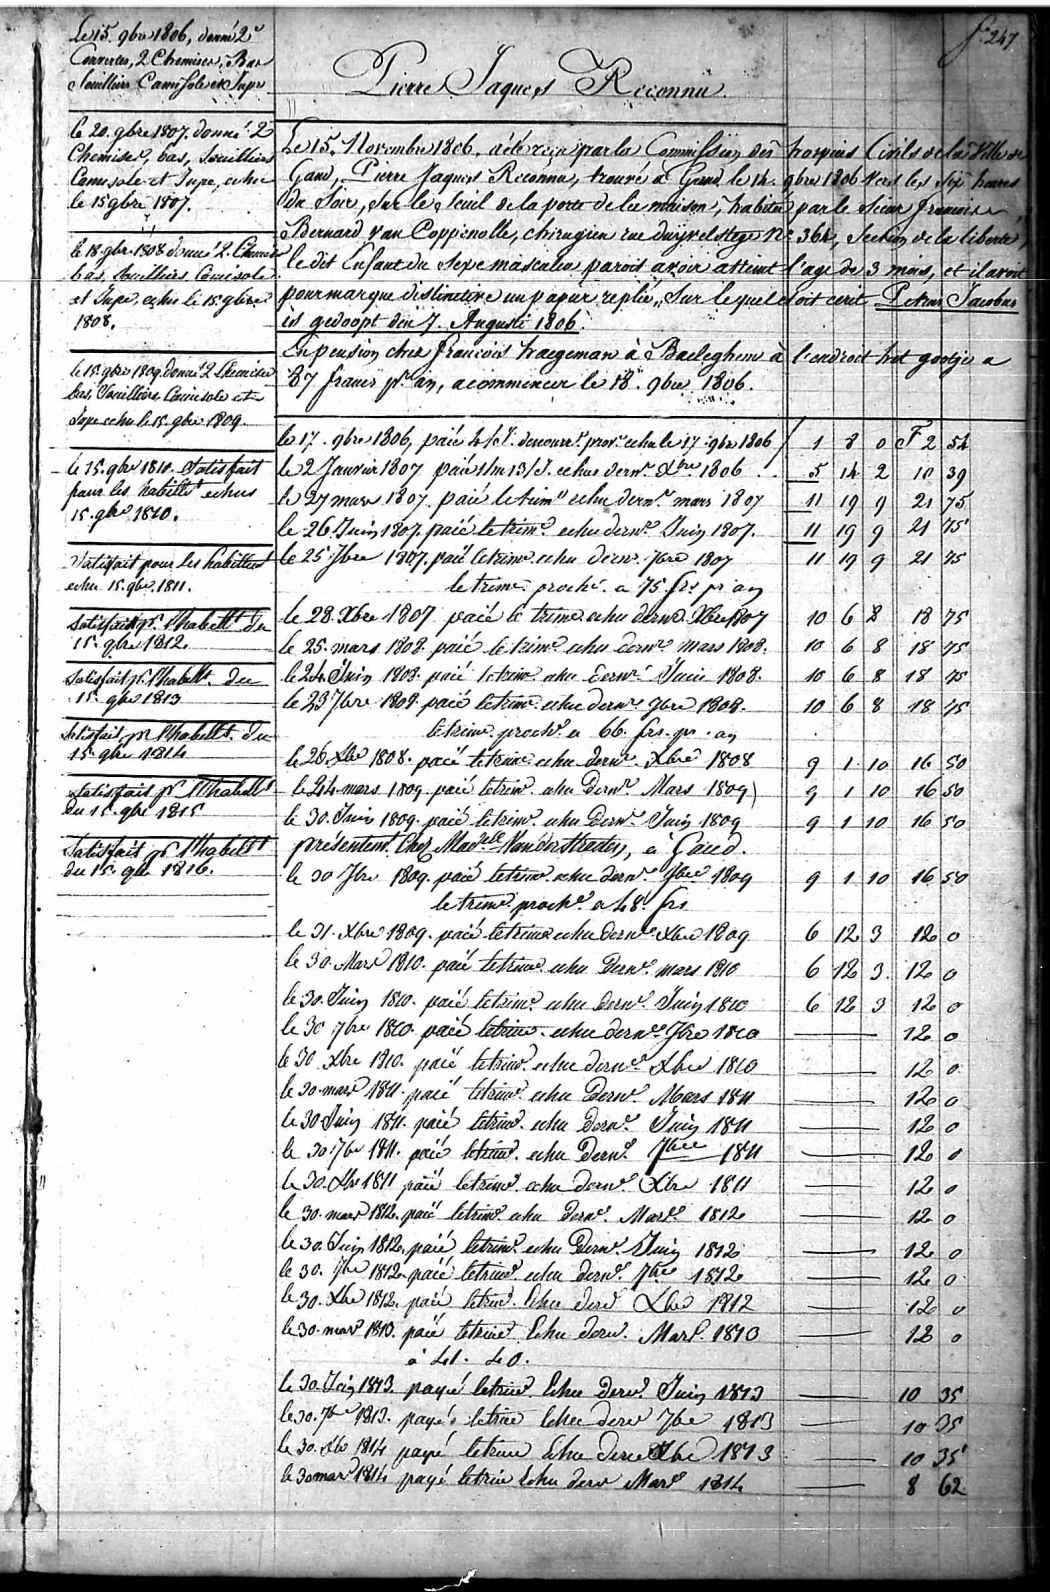 f.° 247
Le 15. 9bre 1806, donné 2
Couvertes, 2 Chemises, Bas
Souilliers Camisole et Jupe
le 20. 9bre 1807. donné 2
Chemises, bas, souilliers
Camisole et Jupe, echu
le 15 9bre 1807.
le 18 9bre 1808 donné 2 Chemises
bas, souilliers Camisole
et Jupe echu le 15. 9bre
1808.
le 15. 9bre 1809. donné 2 Chemises
bas, Souilliers Camisole et
Jupe echu le 15. 9bre 1809.
le 15. 9bre 1810. Satisfait
pour les habillts echus
15. 9bre 1810.
Satisfait pour les habillemt
echu 15. 9bre 1811.
Satisfait pr. l'habillt du
15. 9bre 1812.
Satisfait pr. l'habillt. du
15. 9bre 1813
Satisfait pr l'habillt. du
15 9bre 1814
Satisfait pr. l'habillt
du 15. 9bre 1815
Satisfait pr l'habillt
du 15. 9bre 1816.
Pierre Jaques Reconnu.
Le 15. Novembre 1806, a été reçu par la Commission des hospices Civils de la Ville de
Gand, Pierre Jaques Reconnu, trouvé à Gand le 14. 9bre 1806 vers les six heures
du Soir, sur le Seuil de la porte de la maison, habitée par le Sieur François
Bernard Van Coppenolle, chirugien rue dwijvelstege No 364, Section de la liberté,
le dit Enfant du Sexe masculin paroit avoir atteint l'age de 3 mois, et il avoit
pour marque distinctive un papier replié, sur lequel etoit ecrit Petrus Jacobus
is gedoopt den 7. Augusti 1806.
En pension chez François haegeman à Baeleghem à l'endroit het gootje a
87 francs pr. an, a commencer le 18. 9bre 1806.
le 17. 9bre 1806, paié echu le 17. 9bre 1806 1 8 0 F 2 54
le 2 Janvier 1807 paié echu dernr. Xbre 1806 5 14 2 10 39
le 27 mars 1807. paié le trimre echu dernr. mars 1807 11 19 9 21 75
le 26. Juin 1807. paié le trimre. echu dernr. Juin 1807. 11 19 9 21 75
le 25 7bre 1807. paié le trimre. echu dernr. 7bre 1807 11 19 9 21 75
le trimre. proche. a 75 frs. pr an
le 28. Xbre 1807 paié le trimre. echu dernr. Xbre 1807 10 6 8 18 75
le 25. mars 1808. paié le trimre. echu dernr. mars 1808. 10 6 8 18 75
le 24 Juin 1808. paié le trimre. echu dernr. Juin 1808. 10 6 8 18 75
le 23 7bre 1808. paié le trimre. echu dernr. 7bre 1808. 10 6 8 18 75
le trimre. proche. a 66. frs. pr. an
le 26. Xbre 1808. paié le trimre. echu dernr. Xbre 1808 9 1 10 16 50
le 24. mars 1809. paié le trimre. echu Dernr. Mars 1809 9 1 10 16 50
le 30. Juin 1809. paié le trimre. echu Dernr. Juin 1809 9 1 10 16 50
présentent. Chez Madelle Vanderstraten, à Gand.
le 30 7bre 1809. paié le trimre. echu dernr. 7bre 1809 9 1 10 16 50
le trimre. proche. a 48. frs
le 31. Xbre 1809. paié le trimre echu dernr. Xbre 1809 6 12 3 12 0
le 30. Mars 1810. paié le trimre. echu Dernr. mars 1810 6 12 3. 12 0
le 30. Juin 1810. paié le trimre. echu dernr. Juin 1810 6 12 3 12 0
le 30 7bre 1810. paié le trimre. echu dernr. 7bre 1810 — 12 0
le 30 Xbre 1810. paié le trimre. echu dernr. Xbre 1810 — 12 0
le 30. mars 1811. paié le trimre. echu Dernr. Mars 1811 — 12 0
le 30 Juin 1811. paié le trimre. echu dernr. Juin 1811 — 12 0
le 30. 7bre 1811. paié le trimre. echu Dernr. 7bre 1811 — 12 0
le 30. Xbre 1811 paié le trimre. echu dernr. Xbre 1811 — 12 0
le 30. mars 1812. paié le trimre. echu Dernr. Mars. 1812 — 12 0
le 30. Juin 1812. paié le trimre. echu Dernr. Juin 1812 — 12 0
le 30. 7bre 1812. paié le trimre. echu dernr. 7bre 1812 — 12 0
le 30. Xbre 1812. paié le trimre. Echu derr Xbre 1812 — 12 0
le 30. mars 1813. paié le trimre. Echu derr. Mars. 1813 — 12 0
à 41. 40.
le 30. Juin 1813. payé le trimre. Echu derr. Juin 1813 — 10 35
le 30. 7bre 1813. payé le trimre Echu derr 7bre 1813 — 10 35
le 30. Xbre 1814 payé le trimre Echu derre Xbre 1813 — 10 35
le 30 mars 1814 payé le trimre Echu derr Mars 1814 — 8 62